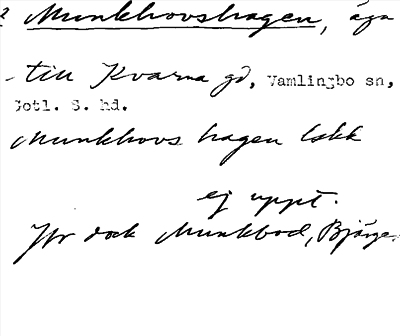 Munkhovshagen, äga
till Kvarna gd, Vamlingbo sn,
Gotl. S. hd.
Munkhovs hagen lskk
ej uppt.
Jfr dock Munkbod, Bjärge